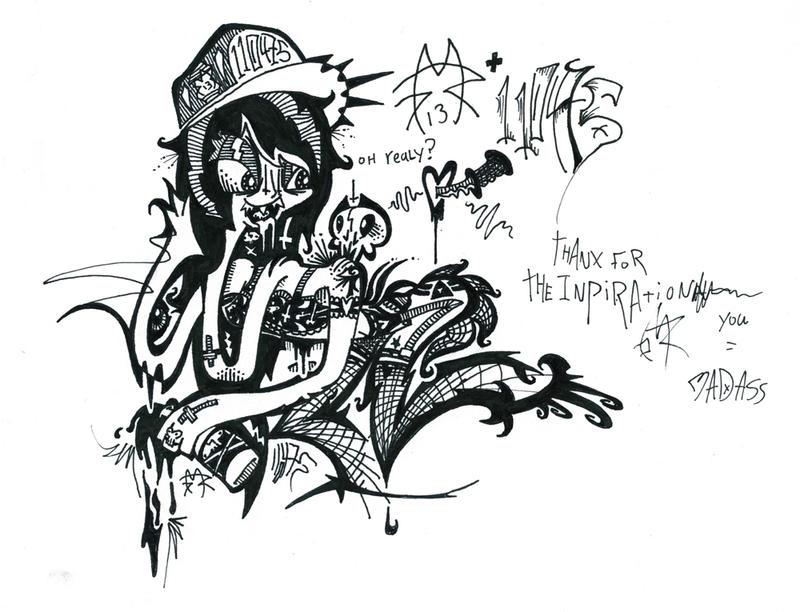 110475
13
+ 110475
OH REALY?
THANX FOR
THE INPIRAtiON
You
=
MADASS